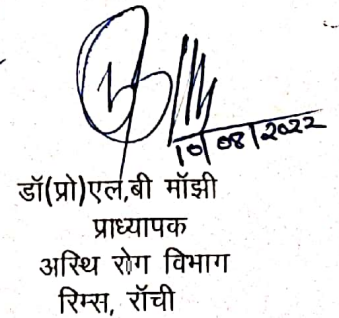 10/08/2022
डॉ(प्रो)एल,बी मॉझी
प्राध्यापक
अस्थि रोग विभाग
रिम्स, रॉची